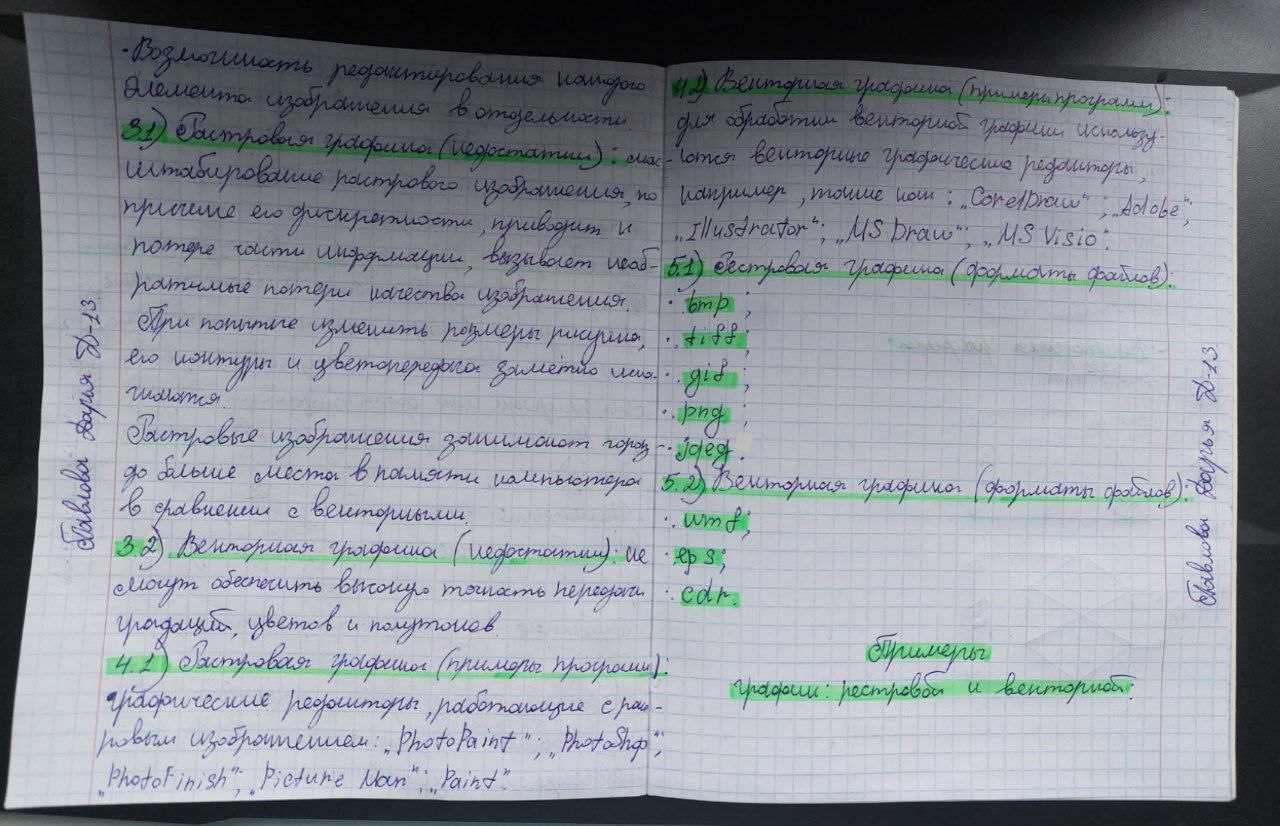 · Возможность редактирования каждого
элемента изображения в отдельности.
3.1) Растровая графика (недостатки): мас-
штабирование растрового изображения, по
причине его дискретности, приводит к
потере части информации, вызывает необ-
ратимые потери качества изображения.
При попытке изменить размеры рисунка,
его контуры и цветопередача заметно иска-
жаются.
Растровые изображения занимают гораз-
до больше места в памяти компьютера
в сравнении с векторными.
3.2) Векторная графика (недостатки): не
могут обеспечить высокую точность передачи
градаций, цветов и полутонов.
4.1) Растровая графика (примеры программ):
графические редакторы, работающие с рас-
ровым изображением: „PhotoPaint"; „PhotoShop";
„PhotoFinish"; „Picture Man"; „Paint".
Павлова Дарья Д-13
4.2) Векторная графика (примеры программ):
для обработки векторной графики использу-
ются векторные графические редакторы,
например, такие как: „CorelDraw"; „Adobe";
„Illustrator"; „MS Draw"; „MS Visio".
5.1) Рестровая графика (форматы файлов):
· .bmp;
· .tiff;
· .gif;
· .png;
· .jpeg.
5.2) Векторная графика (форматы файлов):
· .wmf;
· .eps;
· .cdr.
Примеры
графики: рестровой и векторной:
Павлова Дарья Д-13